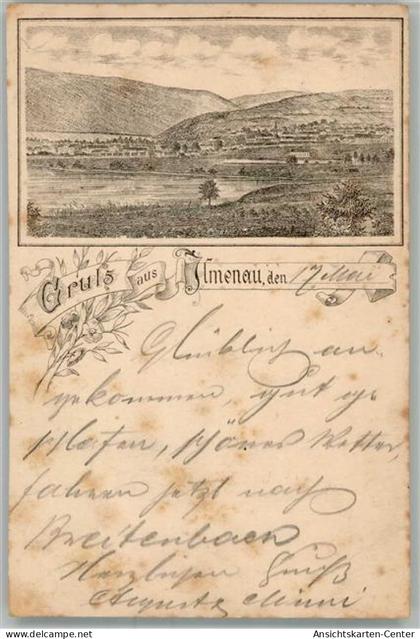 Gruss aus Ilmenau, den 17 Mai
Glücklich an-
gekommen, gut ge
schlafen, schönes Wetter,
fahren jetzt nach
Breitenbach
Herzlichen Gruß
Auguste Minni
www.delcampe.net
tbu
Ansichtskarten-Center.de